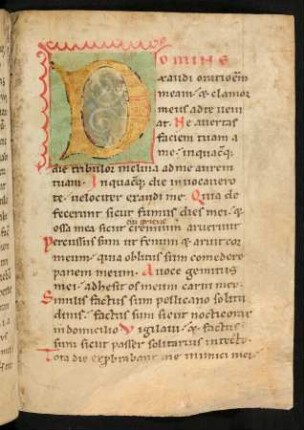 Domine
exaudi orationem
meam: & clamor
meus ad te veni
at. Ne avertas
faciem tuam a
me: in quacūq;
die tribulor inclina ad me aurem
tuam. In quacūq; die invocavero
te: velociter exaudi me. Quia de
fecerunt sicut fumus dies mei: &
ossa mea sicut cremium aruerunt
Percussus sum ut fenum & aruit cor
meum: quia oblitus sum comedere
panem meum. A voce gemitus
mei: adhesit os meum carni mee.
Similis factus sum pellicano solitu
dinis: factus sum sicut nocticorax
in domicilio. Vigilavi & factus
sum sicut passer solitarius in tecto.
Tota die exprobrabant michi inimici mei: